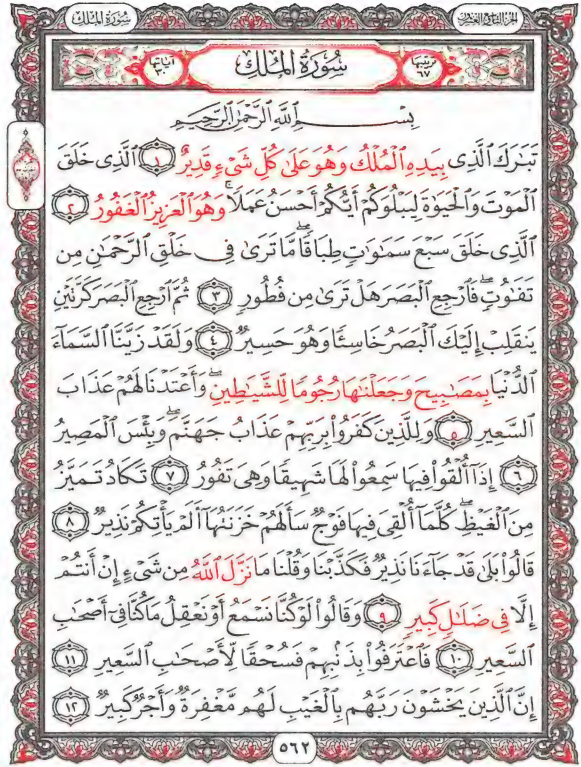 سُورَةُ المُلْكِ
الجزء التاسع والعشرون
سُورَةُ المُلْكِ
ترتيبها ٦٧
آياتها ٣٠
بِسْمِ اللَّهِ الرَّحْمَٰنِ الرَّحِيمِ
تَبَٰرَكَ ٱلَّذِى بِيَدِهِ ٱلْمُلْكُ وَهُوَ عَلَىٰ كُلِّ شَىْءٍ قَدِيرٌ ١ ٱلَّذِى خَلَقَ
ٱلْمَوْتَ وَٱلْحَيَوٰةَ لِيَبْلُوَكُمْ أَيُّكُمْ أَحْسَنُ عَمَلًا ۚ وَهُوَ ٱلْعَزِيزُ ٱلْغَفُورُ ٢
ٱلَّذِى خَلَقَ سَبْعَ سَمَٰوَٰتٍ طِبَاقًا ۖ مَّا تَرَىٰ فِى خَلْقِ ٱلرَّحْمَٰنِ مِن
تَفَٰوُتٍ ۖ فَٱرْجِعِ ٱلْبَصَرَ هَلْ تَرَىٰ مِن فُطُورٍ ٣ ثُمَّ ٱرْجِعِ ٱلْبَصَرَ كَرَّتَيْنِ
يَنقَلِبْ إِلَيْكَ ٱلْبَصَرُ خَاسِئًا وَهُوَ حَسِيرٌ ٤ وَلَقَدْ زَيَّنَّا ٱلسَّمَآءَ
ٱلدُّنْيَا بِمَصَٰبِيحَ وَجَعَلْنَٰهَا رُجُومًا لِّلشَّيَٰطِينِ ۖ وَأَعْتَدْنَا لَهُمْ عَذَابَ
ٱلسَّعِيرِ ٥ وَلِلَّذِينَ كَفَرُوا۟ بِرَبِّهِمْ عَذَابُ جَهَنَّمَ ۖ وَبِئْسَ ٱلْمَصِيرُ
٦ إِذَآ أُلْقُوا۟ فِيهَا سَمِعُوا۟ لَهَا شَهِيقًا وَهِىَ تَفُورُ ٧ تَكَادُ تَمَيَّزُ
مِنَ ٱلْغَيْظِ ۖ كُلَّمَآ أُلْقِىَ فِيهَا فَوْجٌ سَأَلَهُمْ خَزَنَتُهَآ أَلَمْ يَأْتِكُمْ نَذِيرٌ ٨
قَالُوا۟ بَلَىٰ قَدْ جَآءَنَا نَذِيرٌ فَكَذَّبْنَا وَقُلْنَا مَا نَزَّلَ ٱللَّهُ مِن شَىْءٍ إِنْ أَنتُمْ
إِلَّا فِى ضَلَٰلٍ كَبِيرٍ ٩ وَقَالُوا۟ لَوْ كُنَّا نَسْمَعُ أَوْ نَعْقِلُ مَا كُنَّا فِىٓ أَصْحَٰبِ
ٱلسَّعِيرِ ١٠ فَٱعْتَرَفُوا۟ بِذَنۢبِهِمْ فَسُحْقًا لِّأَصْحَٰبِ ٱلسَّعِيرِ ١١
إِنَّ ٱلَّذِينَ يَخْشَوْنَ رَبَّهُم بِٱلْغَيْبِ لَهُم مَّغْفِرَةٌ وَأَجْرٌ كَبِيرٌ ١٢
٥٦٢